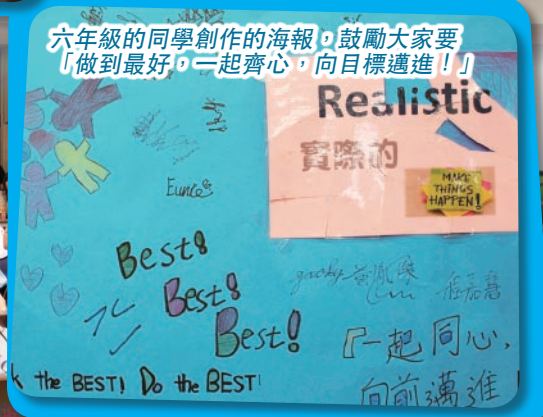 六年級的同學創作的海報，鼓勵大家要
「做到最好，一起齊心，向目標邁進！」
Realistic
實際的
MAKE
THINGS
HAPPEN!
Eunice
Best!
Best!
Best!
『一起同心,
向前邁進
the BEST! Do the BEST!